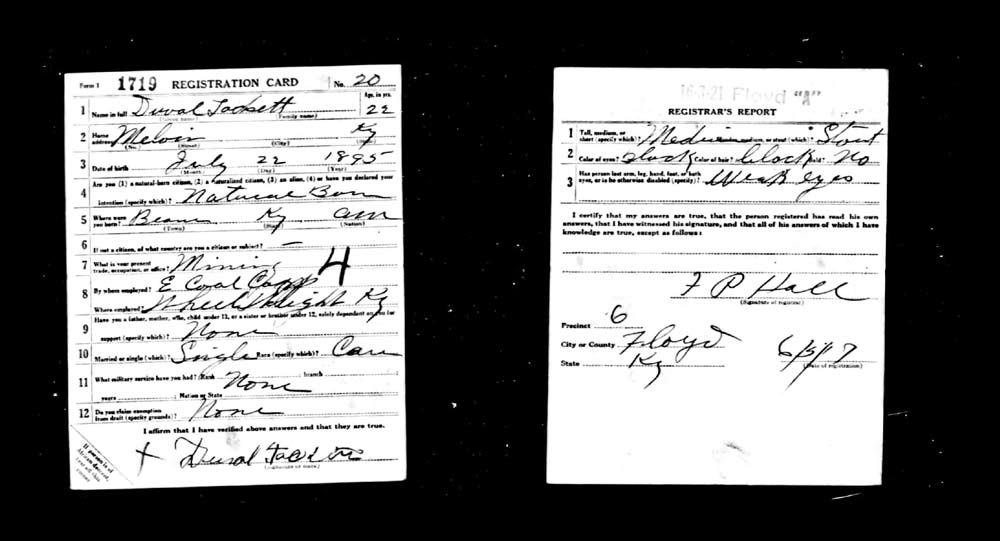 Form 1 1719 REGISTRATION CARD No. 20
Age, in yrs.
1 Name in full Duval Tackett 22
(Given name) (Family name)
2 Home address Melvin Ky
(No.) (Street) (City) (State)
3 Date of birth July 22 1895
(Month) (Day) (Year)
Are you (1) a natural-born citizen, (2) a naturalized citizen, (3) an alien, (4) or have you declared your
4 intention (specify which)? Natural Born
5 Where were you born? Beaver Ky am
(Town) (State) (Nation)
6 If not a citizen, of what country are you a citizen or subject? —
7 What is your present trade, occupation, or office? Mining 4
8 By whom employed? E Coal Comp
Where employed? Wheelwright Ky
Have you a father, mother, wife, child under 12, or a sister or brother under 12, solely dependent on you for
9 support (specify which)? None
10 Married or single (which)? Single Race (specify which)? Cau
11 What military service have you had? Rank None ; branch
years ; Nation or State
12 Do you claim exemption from draft (specify grounds)? None
I affirm that I have verified above answers and that they are true.
+ Duval
(Signature or mark)
If person is of
African descent,
tear off this
corner
16-3-21 Floyd "A"
REGISTRAR'S REPORT
1 Tall, medium, or short (specify which)? Medium Slender, medium, or stout (which)? Stout
2 Color of eyes? Black Color of hair? black Bald? No
3 Has person lost arm, leg, hand, foot, or both eyes, or is he otherwise disabled (specify)? Weak eyes
I certify that my answers are true, that the person registered has read his own
answers, that I have witnessed his signature, and that all of his answers of which I have
knowledge are true, except as follows:
F P Hall
(Signature of registrar)
Precinct 6
City or County Floyd
State Ky 6/5/17
(Date of registration)